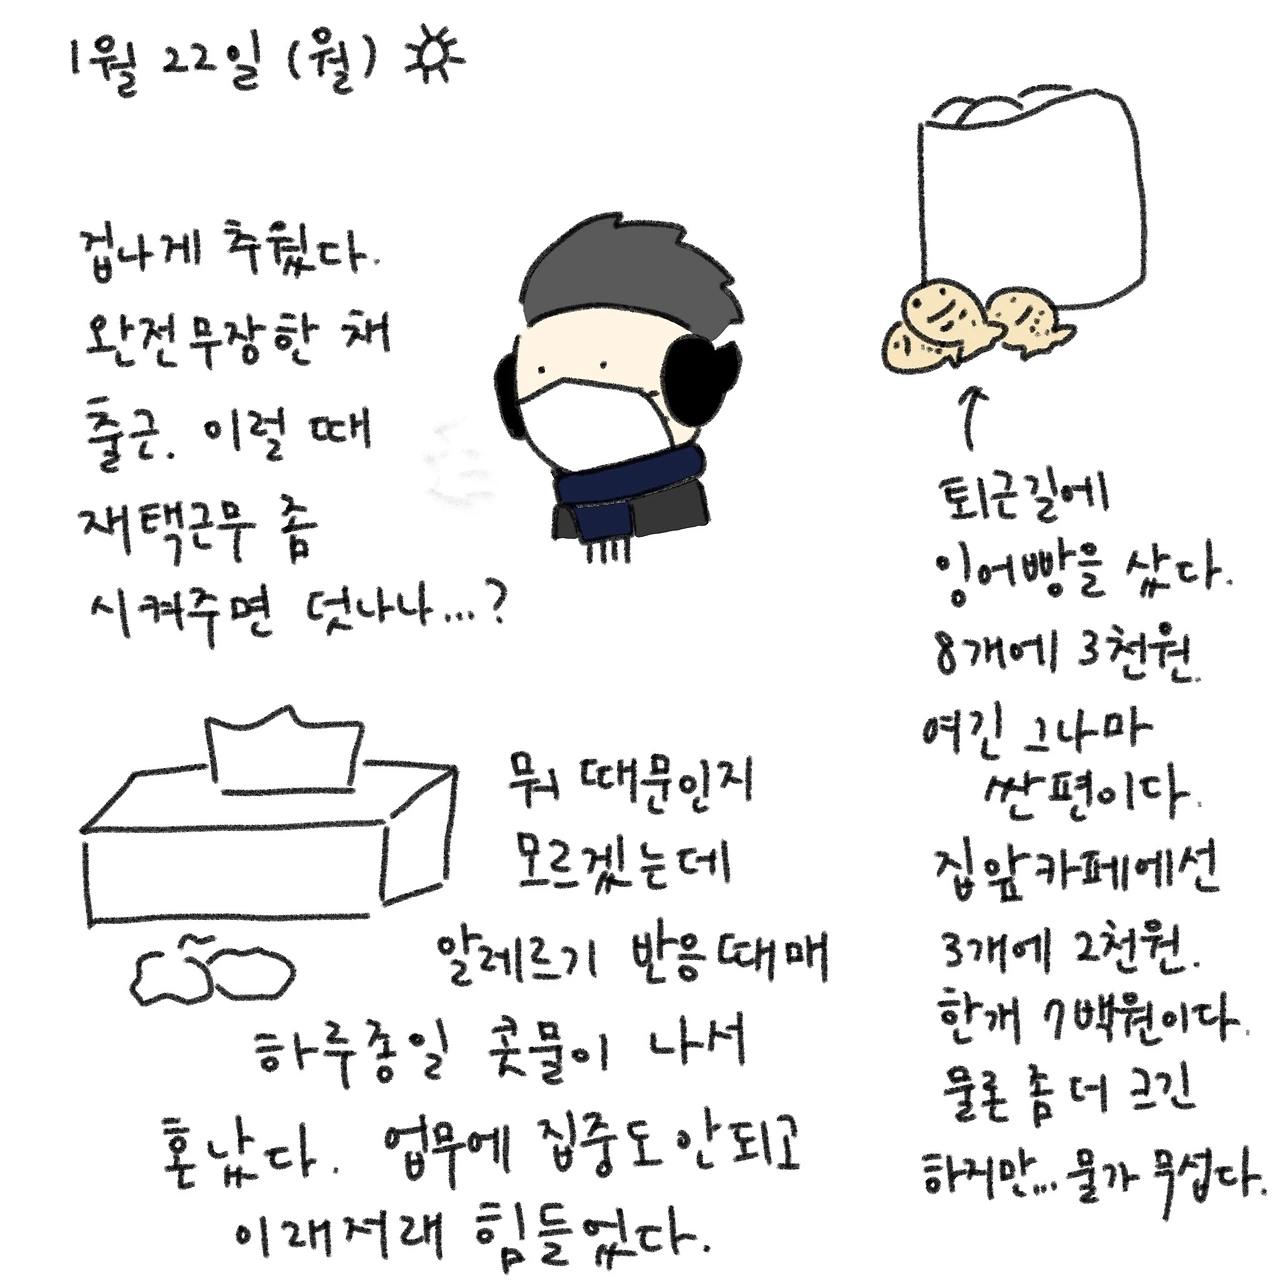 1월 22일 (월)
겁나게 추웠다.
완전무장한 채
출근. 이럴 때
재택근무 좀
시켜주면 덧나나...?
뭐 때문인지
모르겠는데
알레르기 반응때매
하루종일 콧물이 나서
혼났다. 업무에 집중도 안되고
이래저래 힘들었다.
퇴근길에
잉어빵을 샀다.
8개에 3천원.
여긴 그나마
싼편이다.
집앞카페에선
3개에 2천원.
한개 7백원이다.
물론 좀 더 크긴
하지만... 물가 무섭다.